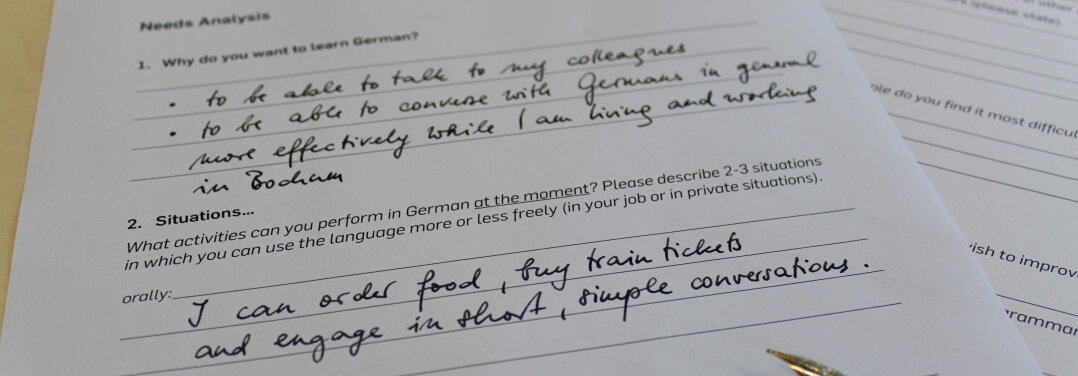 Needs Analysis
1. Why do you want to learn German?
• to be able to talk to my colleagues
• to be able to converse with Germans in general
more effectively while I am living and working
in Bochum
2. Situations...
What activities can you perform in German at the moment? Please describe 2-3 situations
in which you can use the language more or less freely (in your job or in private situations).
orally: I can order food, buy train tickets
and engage in short, simple conversations.
in other
(please state)
do you find it most difficult
ish to improv
rammar